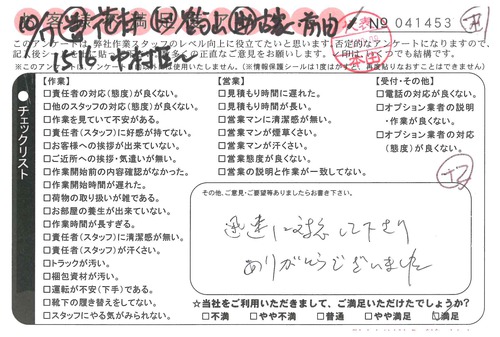 No 041453
このアンケートは、弊社作業スタッフのレベル向上に役立てたいと思います。否定的なアンケートになりますので、
※このアンケートは、
【作業】
□責任者の対応(態度)が良くない。
□他のスタッフの対応(態度)が良くない。
□作業を見ていて不安がある。
□責任者(スタッフ)に好感が持てない。
□お客様への挨拶が出来ていない。
□ご近所への挨拶・気遣いが無い。
□作業開始前の内容確認がなかった。
□作業開始時間が遅れた。
□荷物の取り扱いが雑である。
□お部屋の養生が出来ていない。
□作業時間が長すぎる。
□責任者(スタッフ)に清潔感が無い。
□責任者(スタッフ)が汗くさい。
□トラックが汚い。
□梱包資材が汚い。
□運転が不安(下手)である。
□靴下の履き替えをしてない。
□スタッフにやる気がみられない。
【営業】
□見積もり時間に遅れた。
□見積もり時間が長い。
□営業マンに清潔感が無い。
□営業マンが煙草くさい。
□営業マンが汗くさい。
□営業態度が良くない。
□営業の説明と作業が一致してない。
【受付・その他】
□電話の対応が良くない。
□オプション業者の説明
・作業が良くない。
□オプション業者の対応
(態度)が良くない。
チェックリスト
その他、ご意見・ご要望等ありましたらお書き下さい。
迅速に対応して下さり
ありがとうございました
☆当社をご利用いただきまして、ご満足いただけたでしょうか?
□不満 □やや不満 □普通 □やや満足 □満足